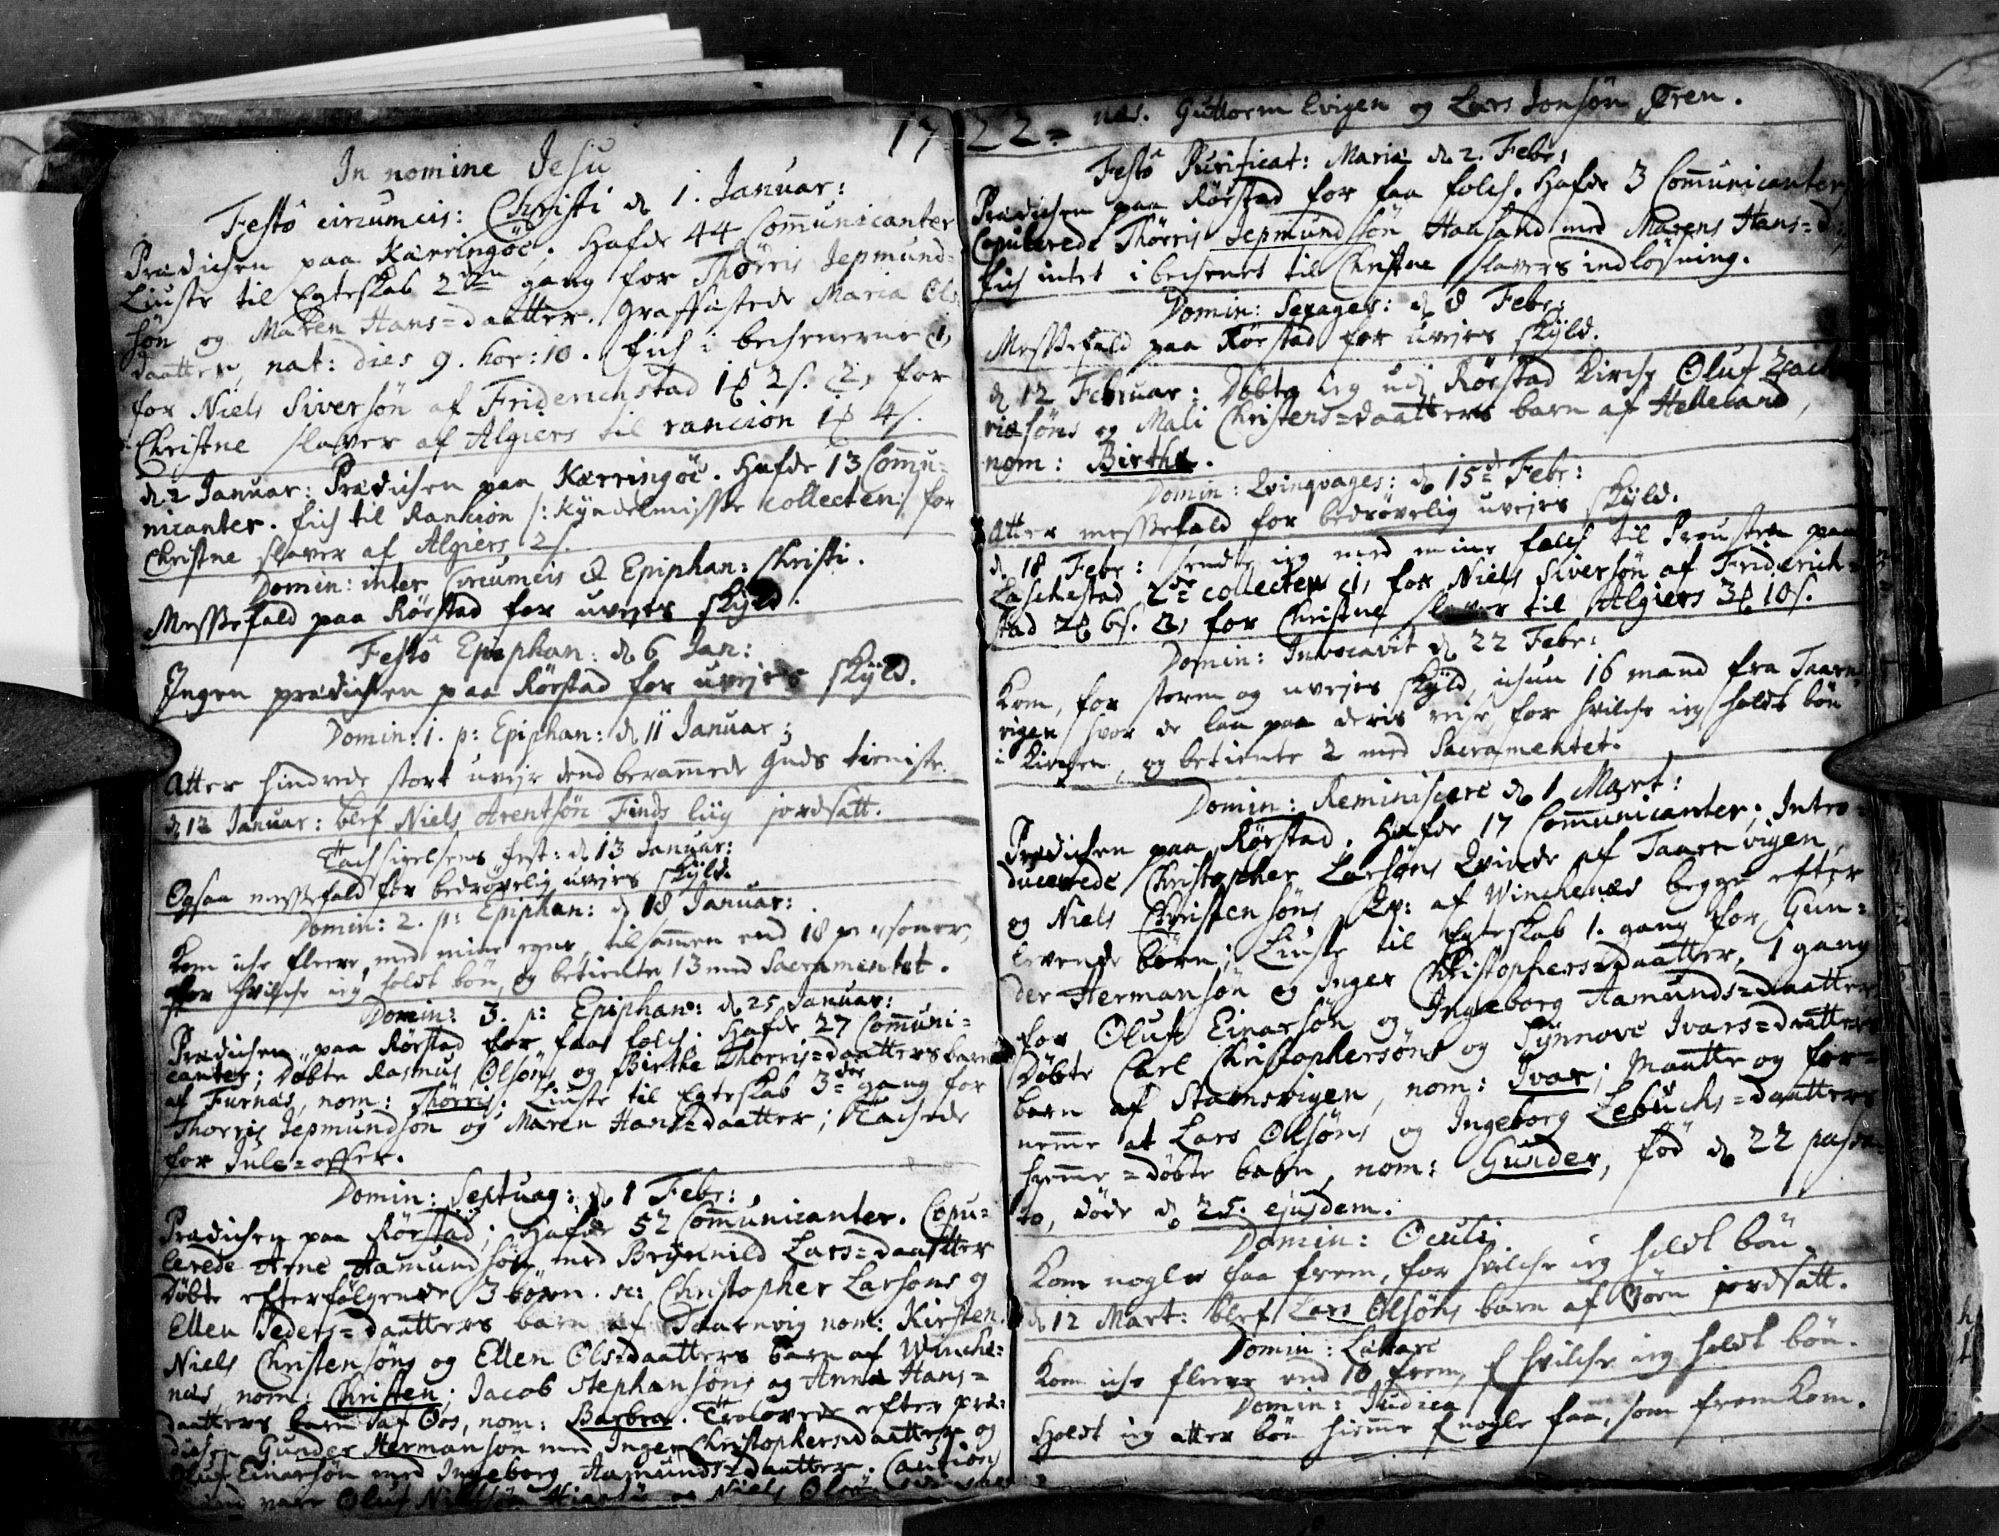 1722 =
In nomine Jesu
Festô circumcis: Christi d. 1. Januar:
Prædichen paa Kærringöe. Hafde 44 Communicanter
Liuste til Egteskab 2den gang for Thörris Jepmund-
søn og Maren Hans=daatter. Graffæstede Maria Ols
daatter, nat: dies 9. hor: 10. fich i becherne 1,
for Niels Siversön af Friderichstad 1 2 s. 2, for
Christne slaver af Algiers til rancion 1 4 s.
d. 2 Januar: Prædichen paa Kærringöe. Hafde 13 Commu=
nicanter. fich til Rancion /: Kyndelmisse collecten :/ for
Christne slaver af Algiers 2 s.
Domin: inter Circumcis & Epiphan: Christi.
Messefald paa Rörstad for uvejrs skÿld.
Festô Epiphan: d. 6 Jan:
Ingen prædichen paa Rörstad for uvejrs skÿld.
Domin: 1. p: Epiphan: d. 11 Januar:
Atter hindrede stort uvejr dend berammede Guds tieniste.
d. 12 Januar: blef Niels Arentsøn Finds liig jordsatt.
Tachsigelsens fest: d. 13 Januar:
Ogsaa messefald for bedrövelig uvejrs skÿld.
Domin: 2. p: Epiphan: d. 18 Januar:
Kom iche fleere, med mine egne, tilsammen end 18 personer,
for hvilche ieg holdt bön, og betiente 13 med Sacramentet.
Domin: 3. p: Epiphan: d. 25 Januar:
Prædichen paa Rörstad for faa folch. Hafde 27 Communi=
canter; Döbte Rasmus Olsöns og Birthe Thorris=daatters barn
af Furnæs, nom: Thörris. Liuste til Egteskab 3die gang for
Thorris Jepmundsøn og Maren Hans=daatter; Tachede
for Jule=offer.
Domin: Septuag: d. 1 Febr:
Prædichen paa Rörstad; Hafde 52 Communicanter. Copu=
lerede Arne Aamundsön med Brÿnnild Lars=daatter
Döbte efterfölgende 3 börn. sc: Christopher Larsöns og
Ellen Peders=daatters barn af Taarnvig nom: Kirsten.
Niels Christensöns og Ellen Ols=daatters barn af Winche=
næs nom: Christen; Jacob Stephansöns og Anna Hans=
daatters barn af Oos, nom: Barbra. Trolovede efter præ:
dichen Gunder Hermansön med Inger Christophersdaatter og
Oluf Einarsön med Ingeborg Aamunds=daatter. Caution
Oluf Nielsøn Niels
næs. Guttorm Evigen og Lars Jonsön Øren.
Festô Purificat: Mariæ d. 2. Febr:
Prædichen paa Rörstad for faa folch. Hafde 3 Communicanter,
Copulerede Thörris Jepmundsön Hausand med Marens Hans=d:,
fich intet i bechenet til Christne slavers indlösning.
Domin: Sexages: d. 8 Febr:
Messefald paa Rörstad for uvejrs skÿld.
d. 12 Februar: Döbte ieg udj Rörstad Kirche Oluf Zacha
riæsöns og Mali Christens=daatters barn af Hellecand,
nom: Birthe.
Domin: Qvinqvages: d. 15 Febr:
Atter messefald for bedrövelig uvejrs skÿld.
d. 18 Febr: sendte ieg med mine folch til Prousten paa
Laschestad 2de collecter 1, for Niels Siversön af Friderich=
stad 2 6 s. 2, for Christne slaver til Algiers 3 10 s.
Domin: Invocavit d. 22 Febr:
Kom, for storm og uvejrs skÿld, ichun 16 mand fra Taarn
vigen / hvor de laa paa deris reise, for hvilche ieg holdt bön
i Kirchen, og betiente 2 med Sacramentet.
Domin: Reminiscere d. 1 Mart:
Prædichen paa Rörstad. Hafde 17 Communicanter; Intro=
ducerede Christopher Larsöns Qvinde af Taarnvigen,
og Niels Christensöns Qv: af Winchenæs begge efter
levende börn; Liuste til Egteskab 1. gang for Gun=
der Hermansön og Inger Christophers=daatter, 1 gang
for Oluf Einarsön og Ingeborg Aamunds=daatter
Döbte Carl Christophersöns og Sÿnnove Ivars=daatters
barn af Stamsvigen, nom: Ivar; Maatte og for=
nemme at Lars Olsöns og Ingeborg Lebuchs=daatters
hjemme=döbte barn, nom: Gunder, föd d. 22 passa
to, döde d. 25. ejusdem.
Domin: Oculi
Kom nogle faa frem, for hvilche ieg holdt bön.
d. 12 Mart: blef Lars Olsöns barn af Ören jordsatt.
Domin: Lætare
Kom iche fleere end 10 frem, f hvilche ieg holdt bön.
Domin: Judica
Holdt ieg atter bön hiemme f nogle faa, som fremkom.